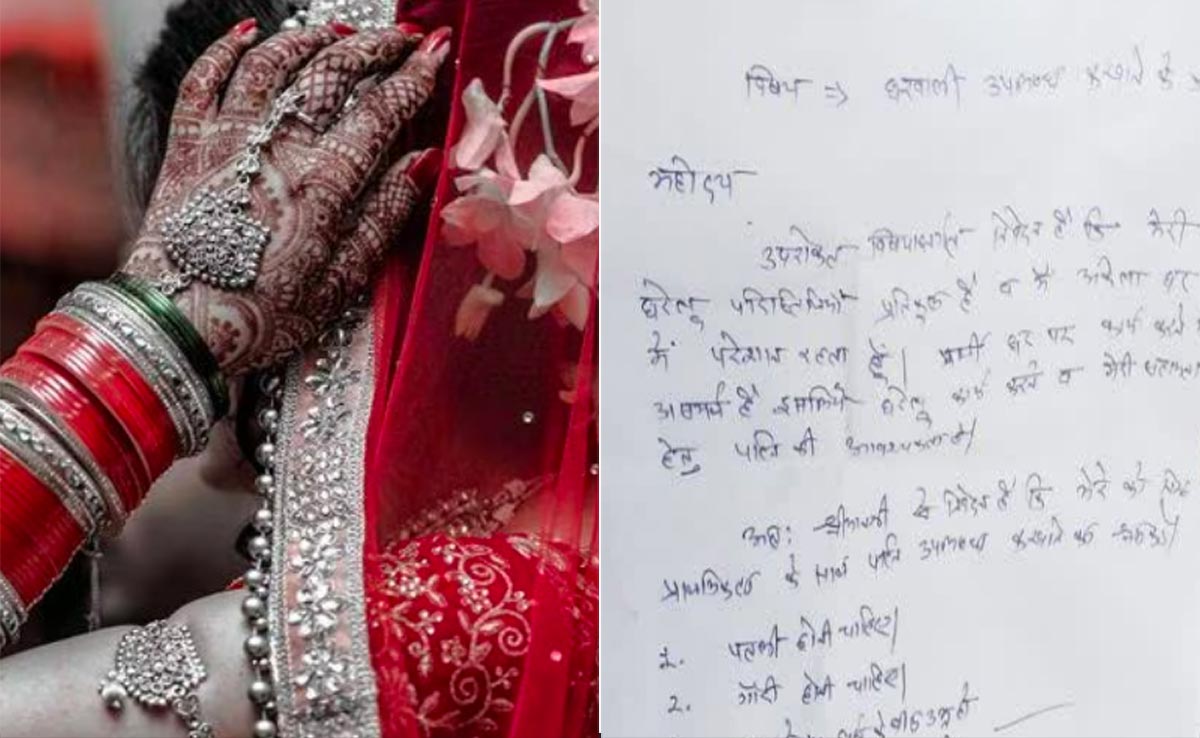 विषय => घरवाली उपलब्ध करवाने के
महोदय
उपरोक्त विषयान्तर्गत निवेदन है कि मेरी
घरेलू परिस्थितियां प्रतिकूल है व मैं अकेला घर
में परेशान रहता हूँ। प्रार्थी घर पर कार्य करने
असमर्थ है इसलिये घरेलू कार्य करने व मेरी सहायता
हेतु पत्नि की आवश्यकता है।
अतः श्रीमानजी से निवेदन है कि मेरे को निम्न
प्राथमिकता के साथ पत्नि उपलब्ध करवाने की
1. पतली होनी चाहिए।
2. गोरी होनी चाहिए।